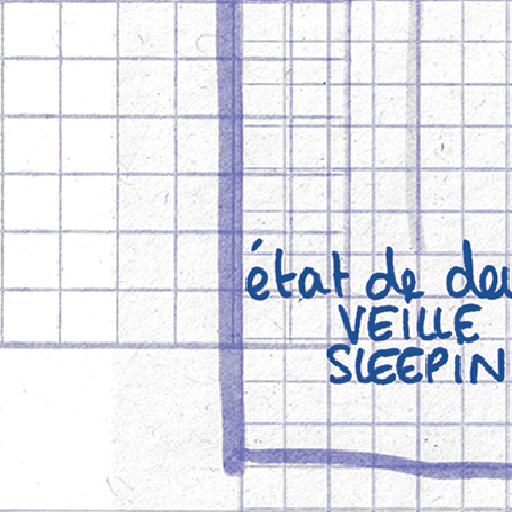 état de
VEILLE
SLEEPIN